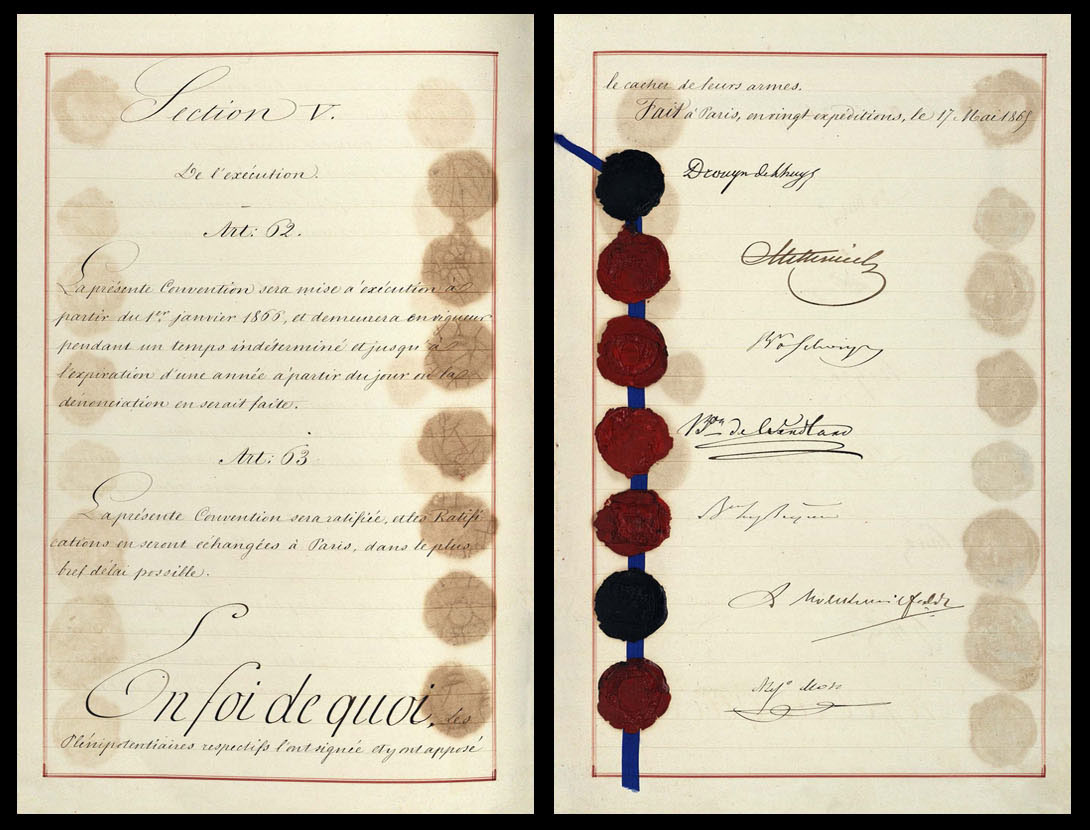 Section V.
De l'exécution.
Art: 62.
La présente Convention sera mise à exécution à
partir du 1er janvier 1866, et demeurera en vigueur
pendant un temps indéterminé et jusqu'à
l'expiration d'une année à partir du jour où la
dénonciation en serait faite.
Art: 63.
La présente Convention sera ratifiée, et les Ratifi
cations en seront échangées à Paris, dans le plus
bref délai possible.
En foi de quoi, les
Plénipotentiaires respectifs l'ont signée et y ont apposé
le cachet de leurs armes.
Fait à Paris, en vingt expéditions, le 17 Mai 1865
Drouyn de Lhuys
Metternich
Bon de Wendland